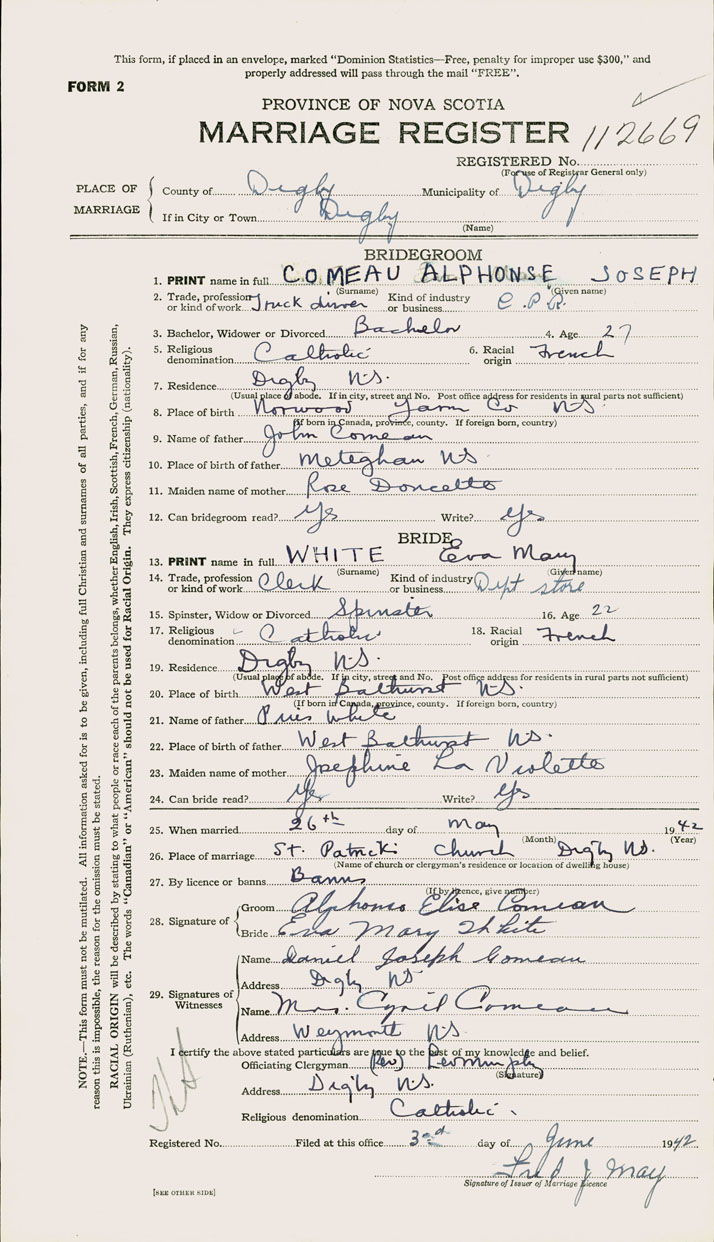 This form, if placed in an envelope, marked “Dominion Statistics—Free, penalty for improper use $300,” and
properly addressed will pass through the mail “FREE”.
FORM 2
PROVINCE OF NOVA SCOTIA
MARRIAGE REGISTER 112669
REGISTERED No.
(For use of Registrar General only)
PLACE OF MARRIAGE
County of Digby Municipality of Digby
If in City or Town Digby
(Name)
BRIDEGROOM
1. PRINT name in full COMEAU ALPHONSE JOSEPH
(Surname) (Given name)
2. Trade, profession or kind of work Truck driver Kind of industry or business C.P.R.
3. Bachelor, Widower or Divorced Bachelor 4. Age 27
5. Religious denomination Catholic 6. Racial origin French
7. Residence Digby N.S.
(Usual place of abode. If in city, street and No. Post office address for residents in rural parts not sufficient)
8. Place of birth Norwood Yarm Co N.S.
(If born in Canada, province, county. If foreign born, country)
9. Name of father John Comeau
10. Place of birth of father Meteghan NS
11. Maiden name of mother Rose Doucette
12. Can bridegroom read? Yes Write? Yes
BRIDE
13. PRINT name in full WHITE Eva Mary
(Surname) (Given name)
14. Trade, profession or kind of work Clerk Kind of industry or business Dept store
15. Spinster, Widow or Divorced Spinster 16. Age 22
17. Religious denomination Catholic 18. Racial origin French
19. Residence Digby N.S.
(Usual place of abode. If in city, street and No. Post office address for residents in rural parts not sufficient)
20. Place of birth West Bathurst N.S.
(If born in Canada, province, county. If foreign born, country)
21. Name of father White
22. Place of birth of father West Bathurst NS.
23. Maiden name of mother Josephine La Violette
24. Can bride read? Yes Write? Yes
25. When married 26th day of May 1942
(Month) (Year)
26. Place of marriage St. Patricks Church Digby N.S.
(Name of church or clergyman's residence or location of dwelling house)
27. By licence or banns Banns
(If by licence, give number)
28. Signature of
Groom Alphonse Elise Comeau
Bride Eva Mary White
29. Signatures of Witnesses
Name Daniel Joseph Comeau
Address Digby NS
Name Mrs. Cyril Comeau
Address Weymouth NS
I certify the above stated particulars are true to the best of my knowledge and belief.
Officiating Clergyman (Rev) Leo Murphy
(Signature)
Address Digby N.S.
Religious denomination Catholic.
Registered No. Filed at this office 3rd day of June 1942
Fred J May
Signature of Issuer of Marriage Licence
[SEE OTHER SIDE]
NOTE.—This form must not be mutilated. All information asked for is to be given, including full Christian and surnames of all parties, and if for any
reason this is impossible, the reason for the omission must be stated.
RACIAL ORIGIN will be described by stating to what people or race each of the parents belongs, whether English, Irish, Scottish, French, German, Russian,
Ukrainian (Ruthenian), etc. The words “Canadian” or “American” should not be used for Racial Origin. They express citizenship (nationality).